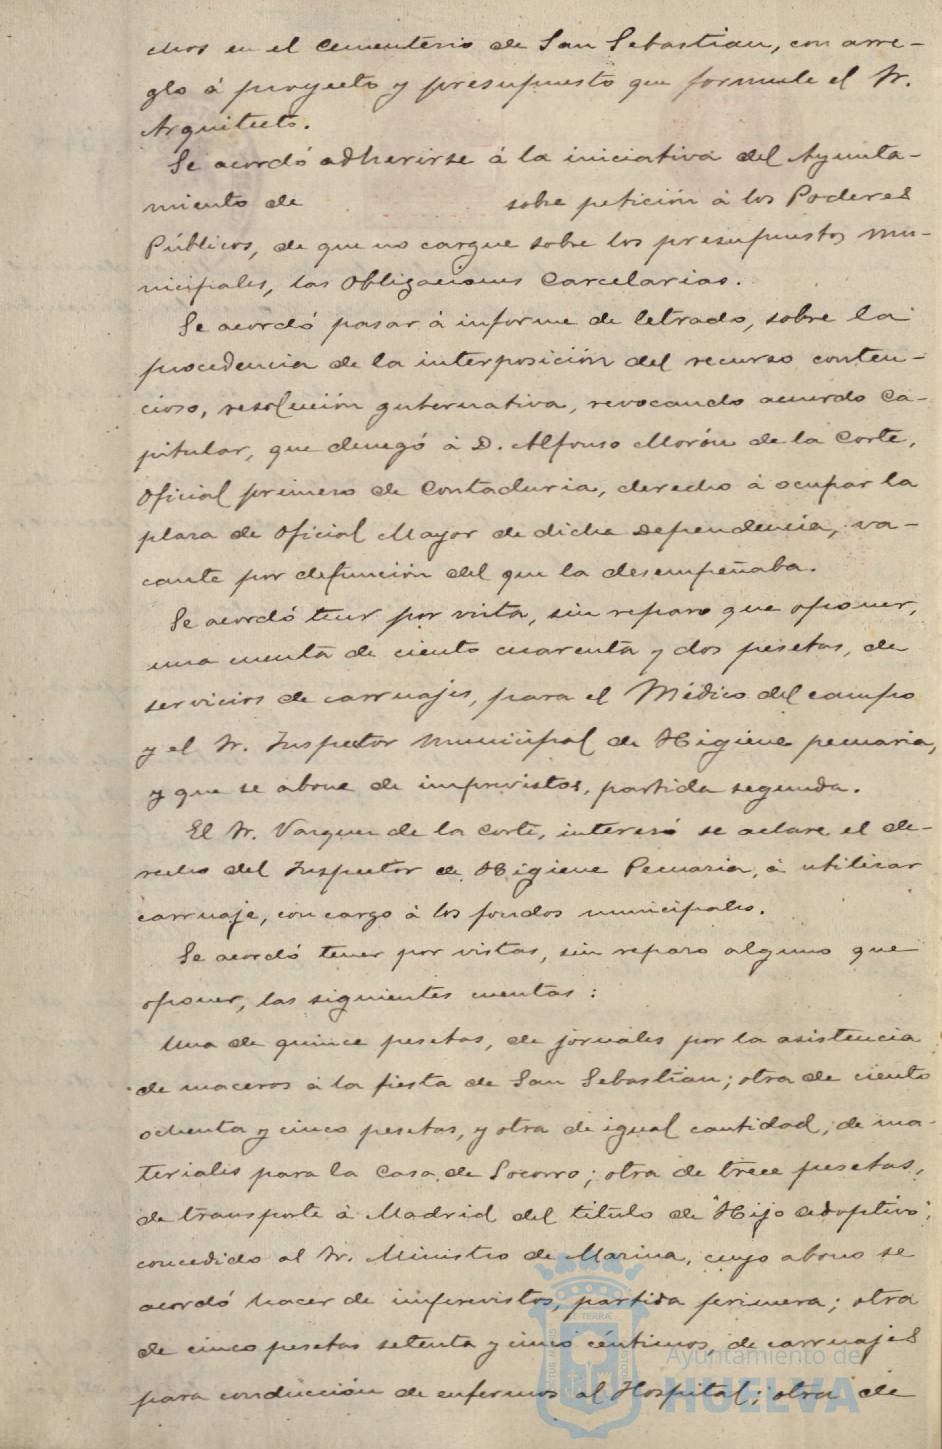 chos en el Cementerio de San Sebastian, con arre-
glo á proyecto y presupuesto que formule el Sr.
Arquitecto.
Se acordó adherirse á la iniciativa del Ayunta-
miento de sobre petición á los Poderes
Públicos, de que no cargue sobre los presupuestos mu-
nicipales, las Obligaciones Carcelarias.
Se acordó pasar á informe de letrado, sobre la
procedencia de la interposición del recurso conten-
cioso, resolución gubernativa, revocando acuerdo Ca-
pitular, que denegó á D. Alfonso Morón de la Corte,
Oficial primero de Contaduria, derecho á ocupar la
plaza de Oficial Mayor de dicha Dependencia, va-
cante por defunción del que la desempeñaba.
Se acordó tener por vista, sin reparo que oponer,
una cuenta de ciento cuarenta y dos pesetas, de
servicios de carruajes, para el Médico del campo
y el Sr. Inspector Municipal de Higiene pecuaria,
y que se abone de imprevistos, partida segunda.
El Sr. Vazquez de la Corte, interesó se aclare el de-
recho del Inspector de Higiene Pecuaria, á utilizar
carruaje, con cargo á los fondos municipales.
Se acordó tener por vistas, sin reparo alguno que
oponer, las siguientes cuentas:
Una de quince pesetas, de jornales por la asistencia
de maceros á la fiesta de San Sebastian; otra de ciento
ochenta y cinco pesetas, y otra de igual cantidad, de ma-
teriales para la Casa de Socorro; otra de trece pesetas,
de transporte á Madrid del título de "Hijo adoptivo",
concedido al Sr. Ministro de Marina, cuyo abono se
acordó hacer de imprevistos, partida primera; otra
de cinco pesetas setenta y cinco céntimos, de carruajes
para conducción de enfermos al Hospital; otra de
Ayuntamiento de
HUELVA